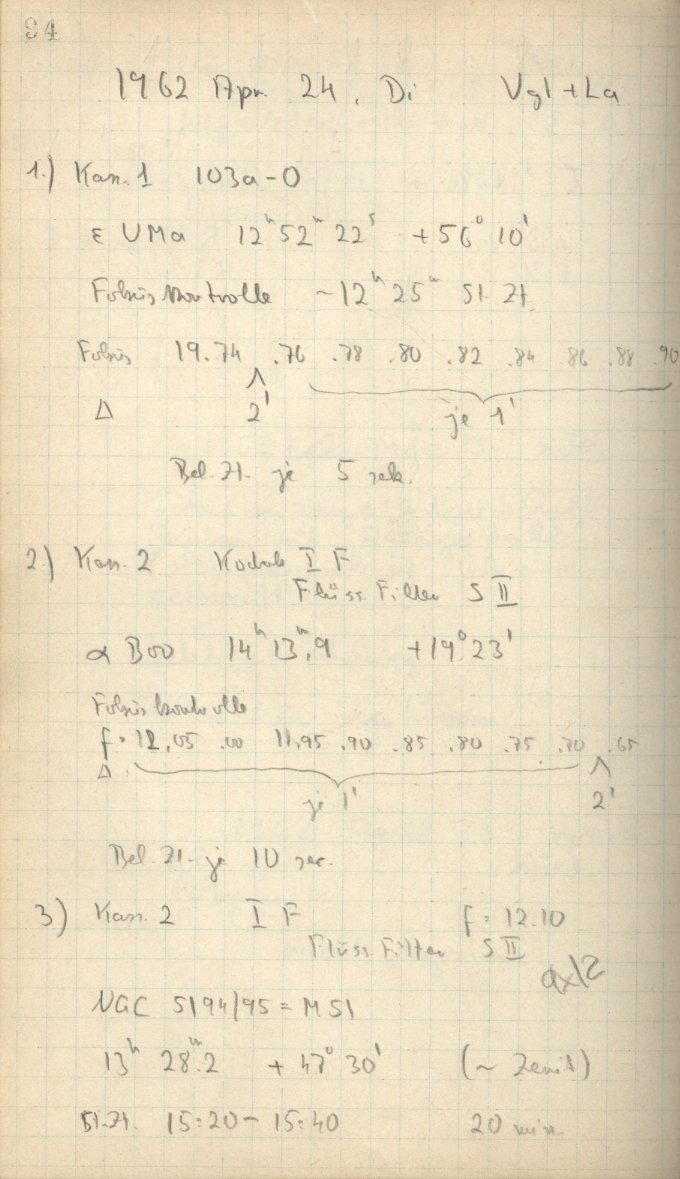 94
1962 Apr. 24, Di Vgl + La
1.) Kam. 1 103a-O
ε UMa 12ʰ 52ᵐ 22ˢ +56° 10'
Fokus kontrolle ~12ʰ 25ᵐ St. Zt.
Fokus 19.74 .76 .78 .80 .82 .84 .86 .88 .90
Δ 2' je 1'
Bel. Zt. je 5 sek.
2.) Kam. 2 Kodak I F
Flüss. Filter S II
α Boo 14ʰ 13ᵐ.9 +19° 23'
Fokus kontrolle
f = 12.05 .00 11.95 .90 .85 .80 .75 .70 .65
Δ je 1' 2'
Bel. Zt. je 10 sec.
3) Kam. 2 I F f = 12.10
Flüss. Filter S II
9x12
NGC 5194/95 = M51
13ʰ 28ᵐ.2 + 47° 30' (~ Zenit)
St. Zt. 15:20 - 15:40 20 min.